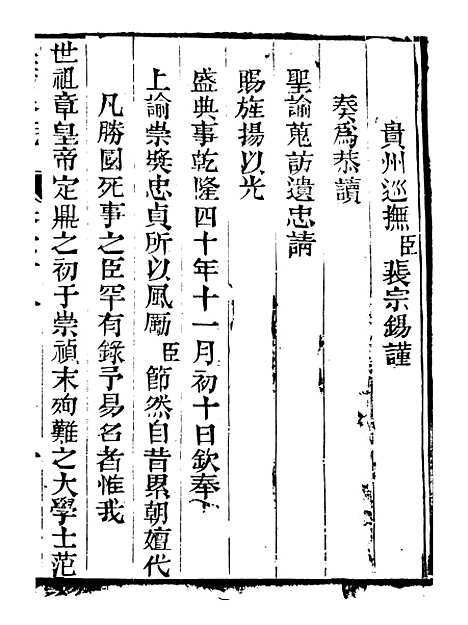 貴州巡撫臣裴宗錫謹
奏爲恭讀
聖諭蒐訪遺忠請
賜旌揚以光
盛典事乾隆四十年十一月初十日欽奉
上諭崇奬忠貞所以風厲臣節然自昔累朝嬗代
凡勝國死事之臣罕有錄予易名者惟我
世祖章皇帝定鼎之初于崇禎末殉難之大學士范